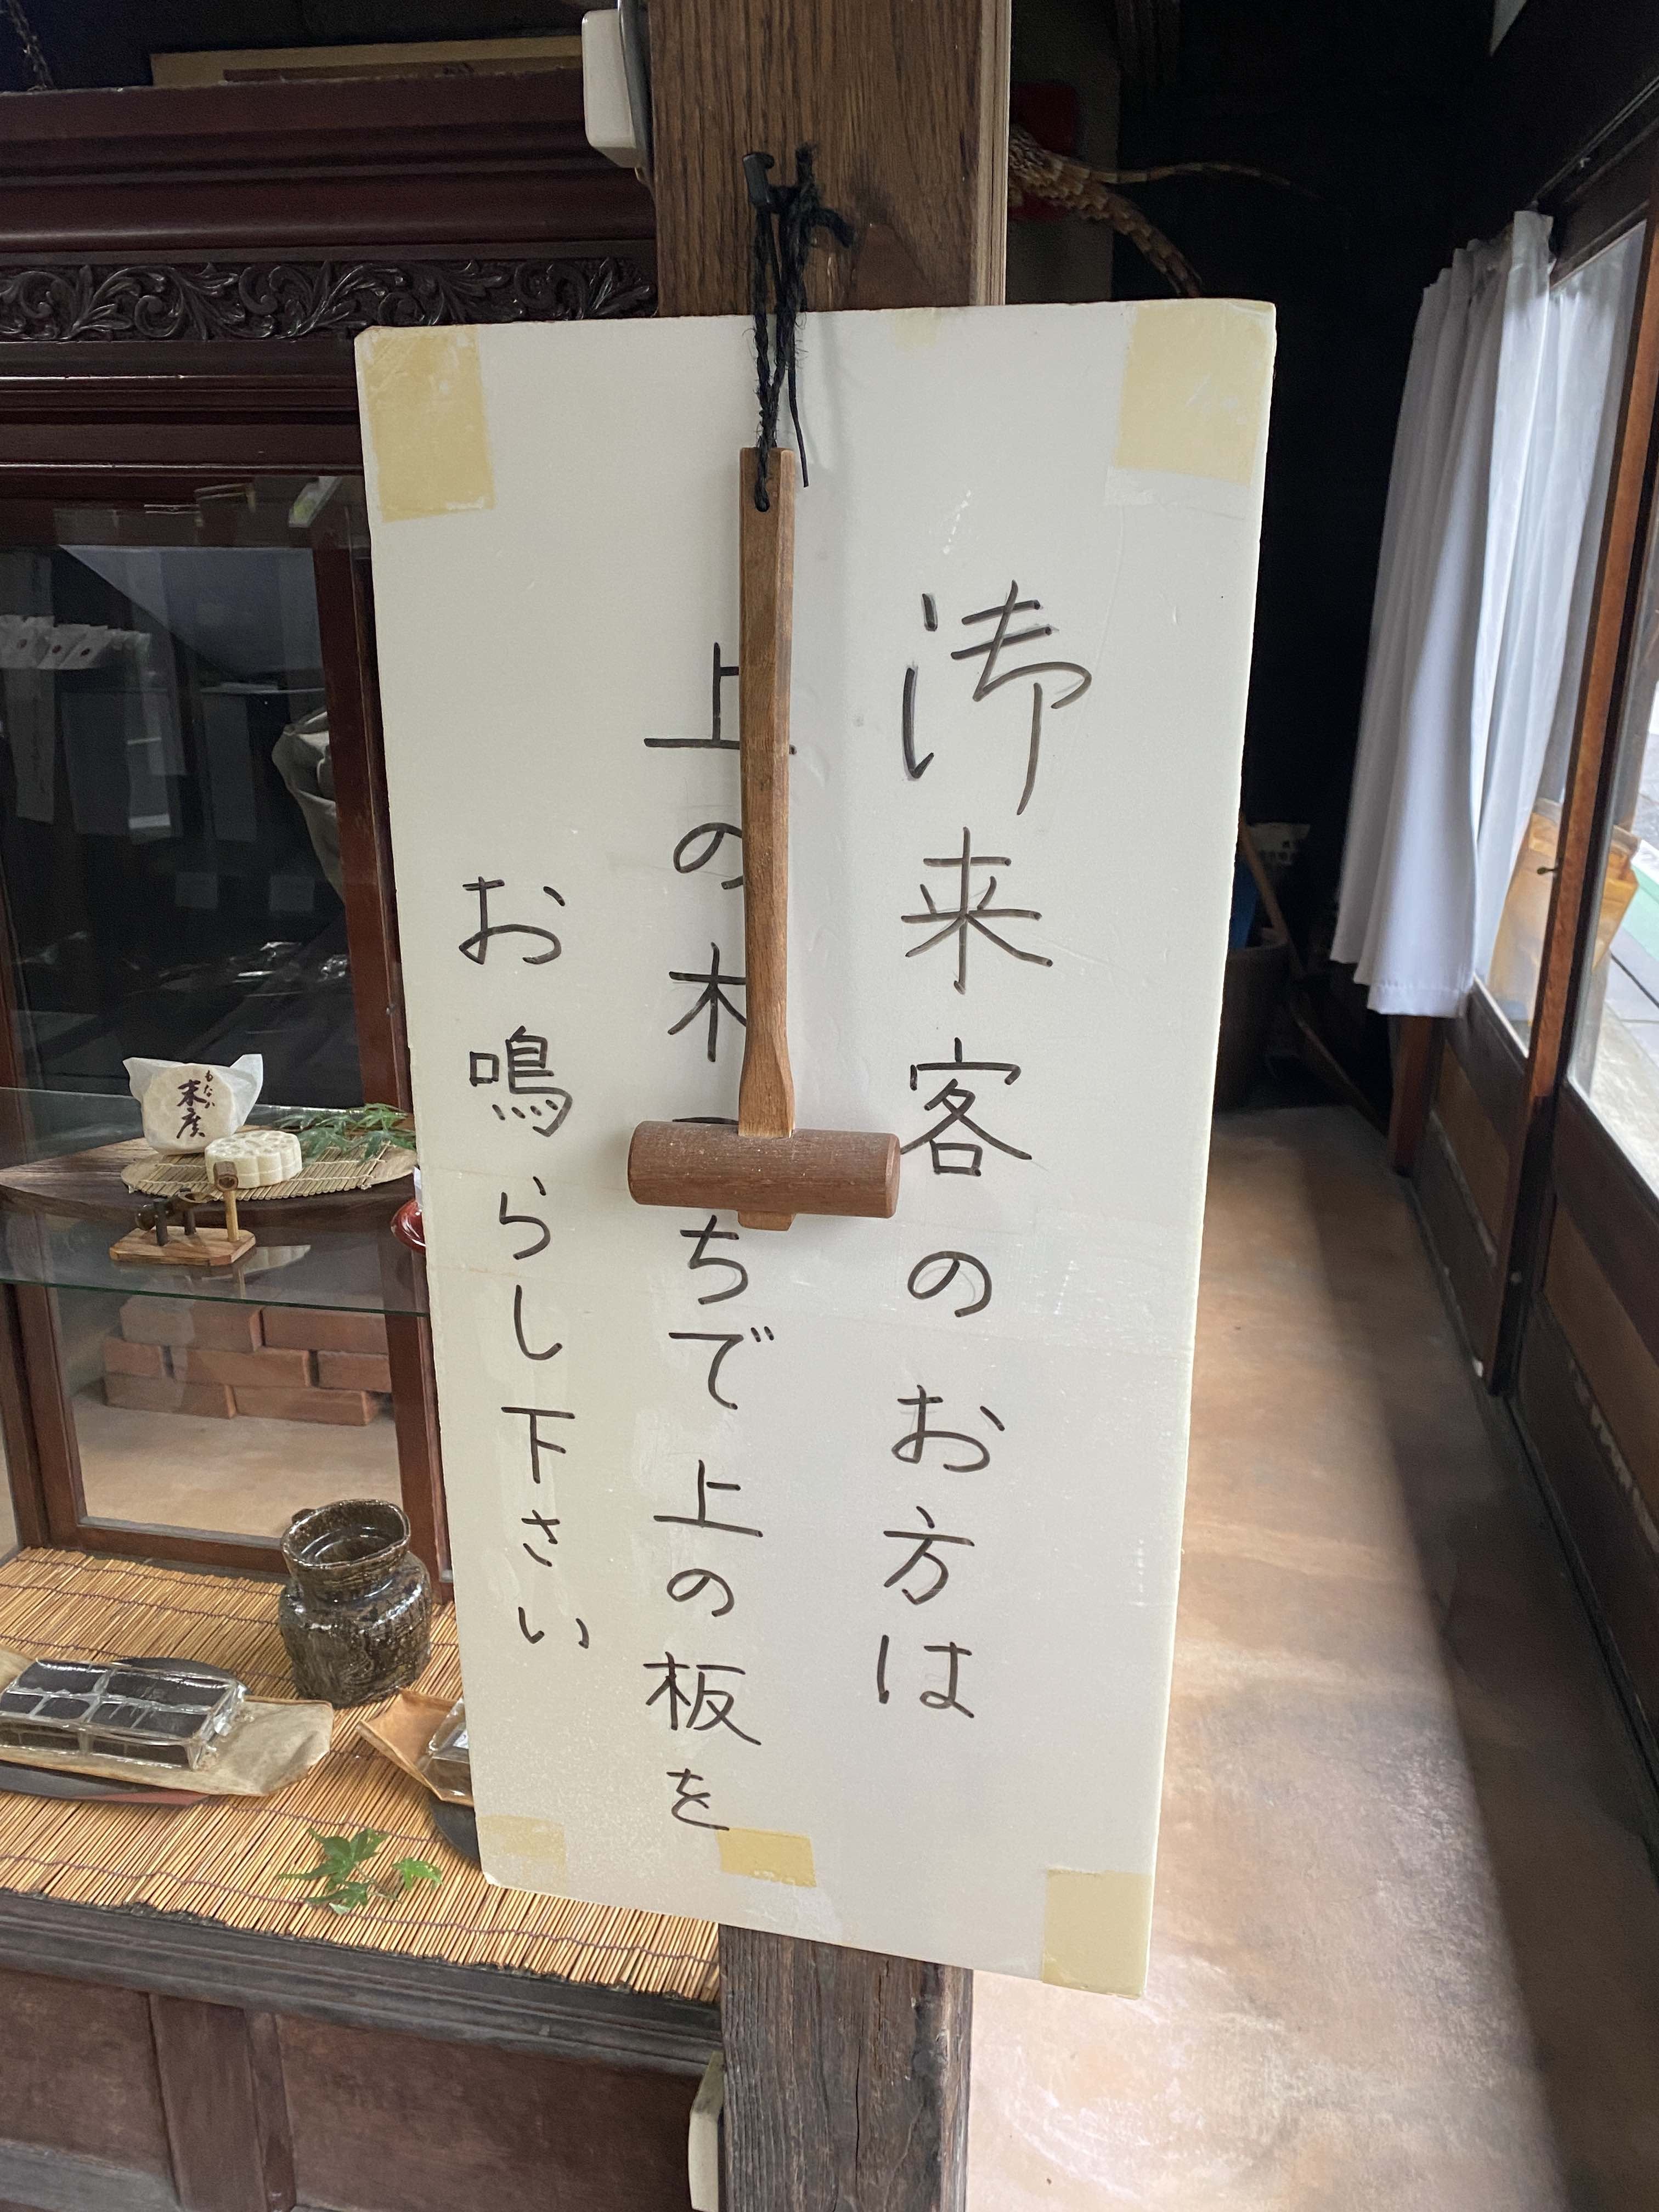 御来客のお方は
上の木づちで上の板を
お鳴らし下さい
もなか
末廣